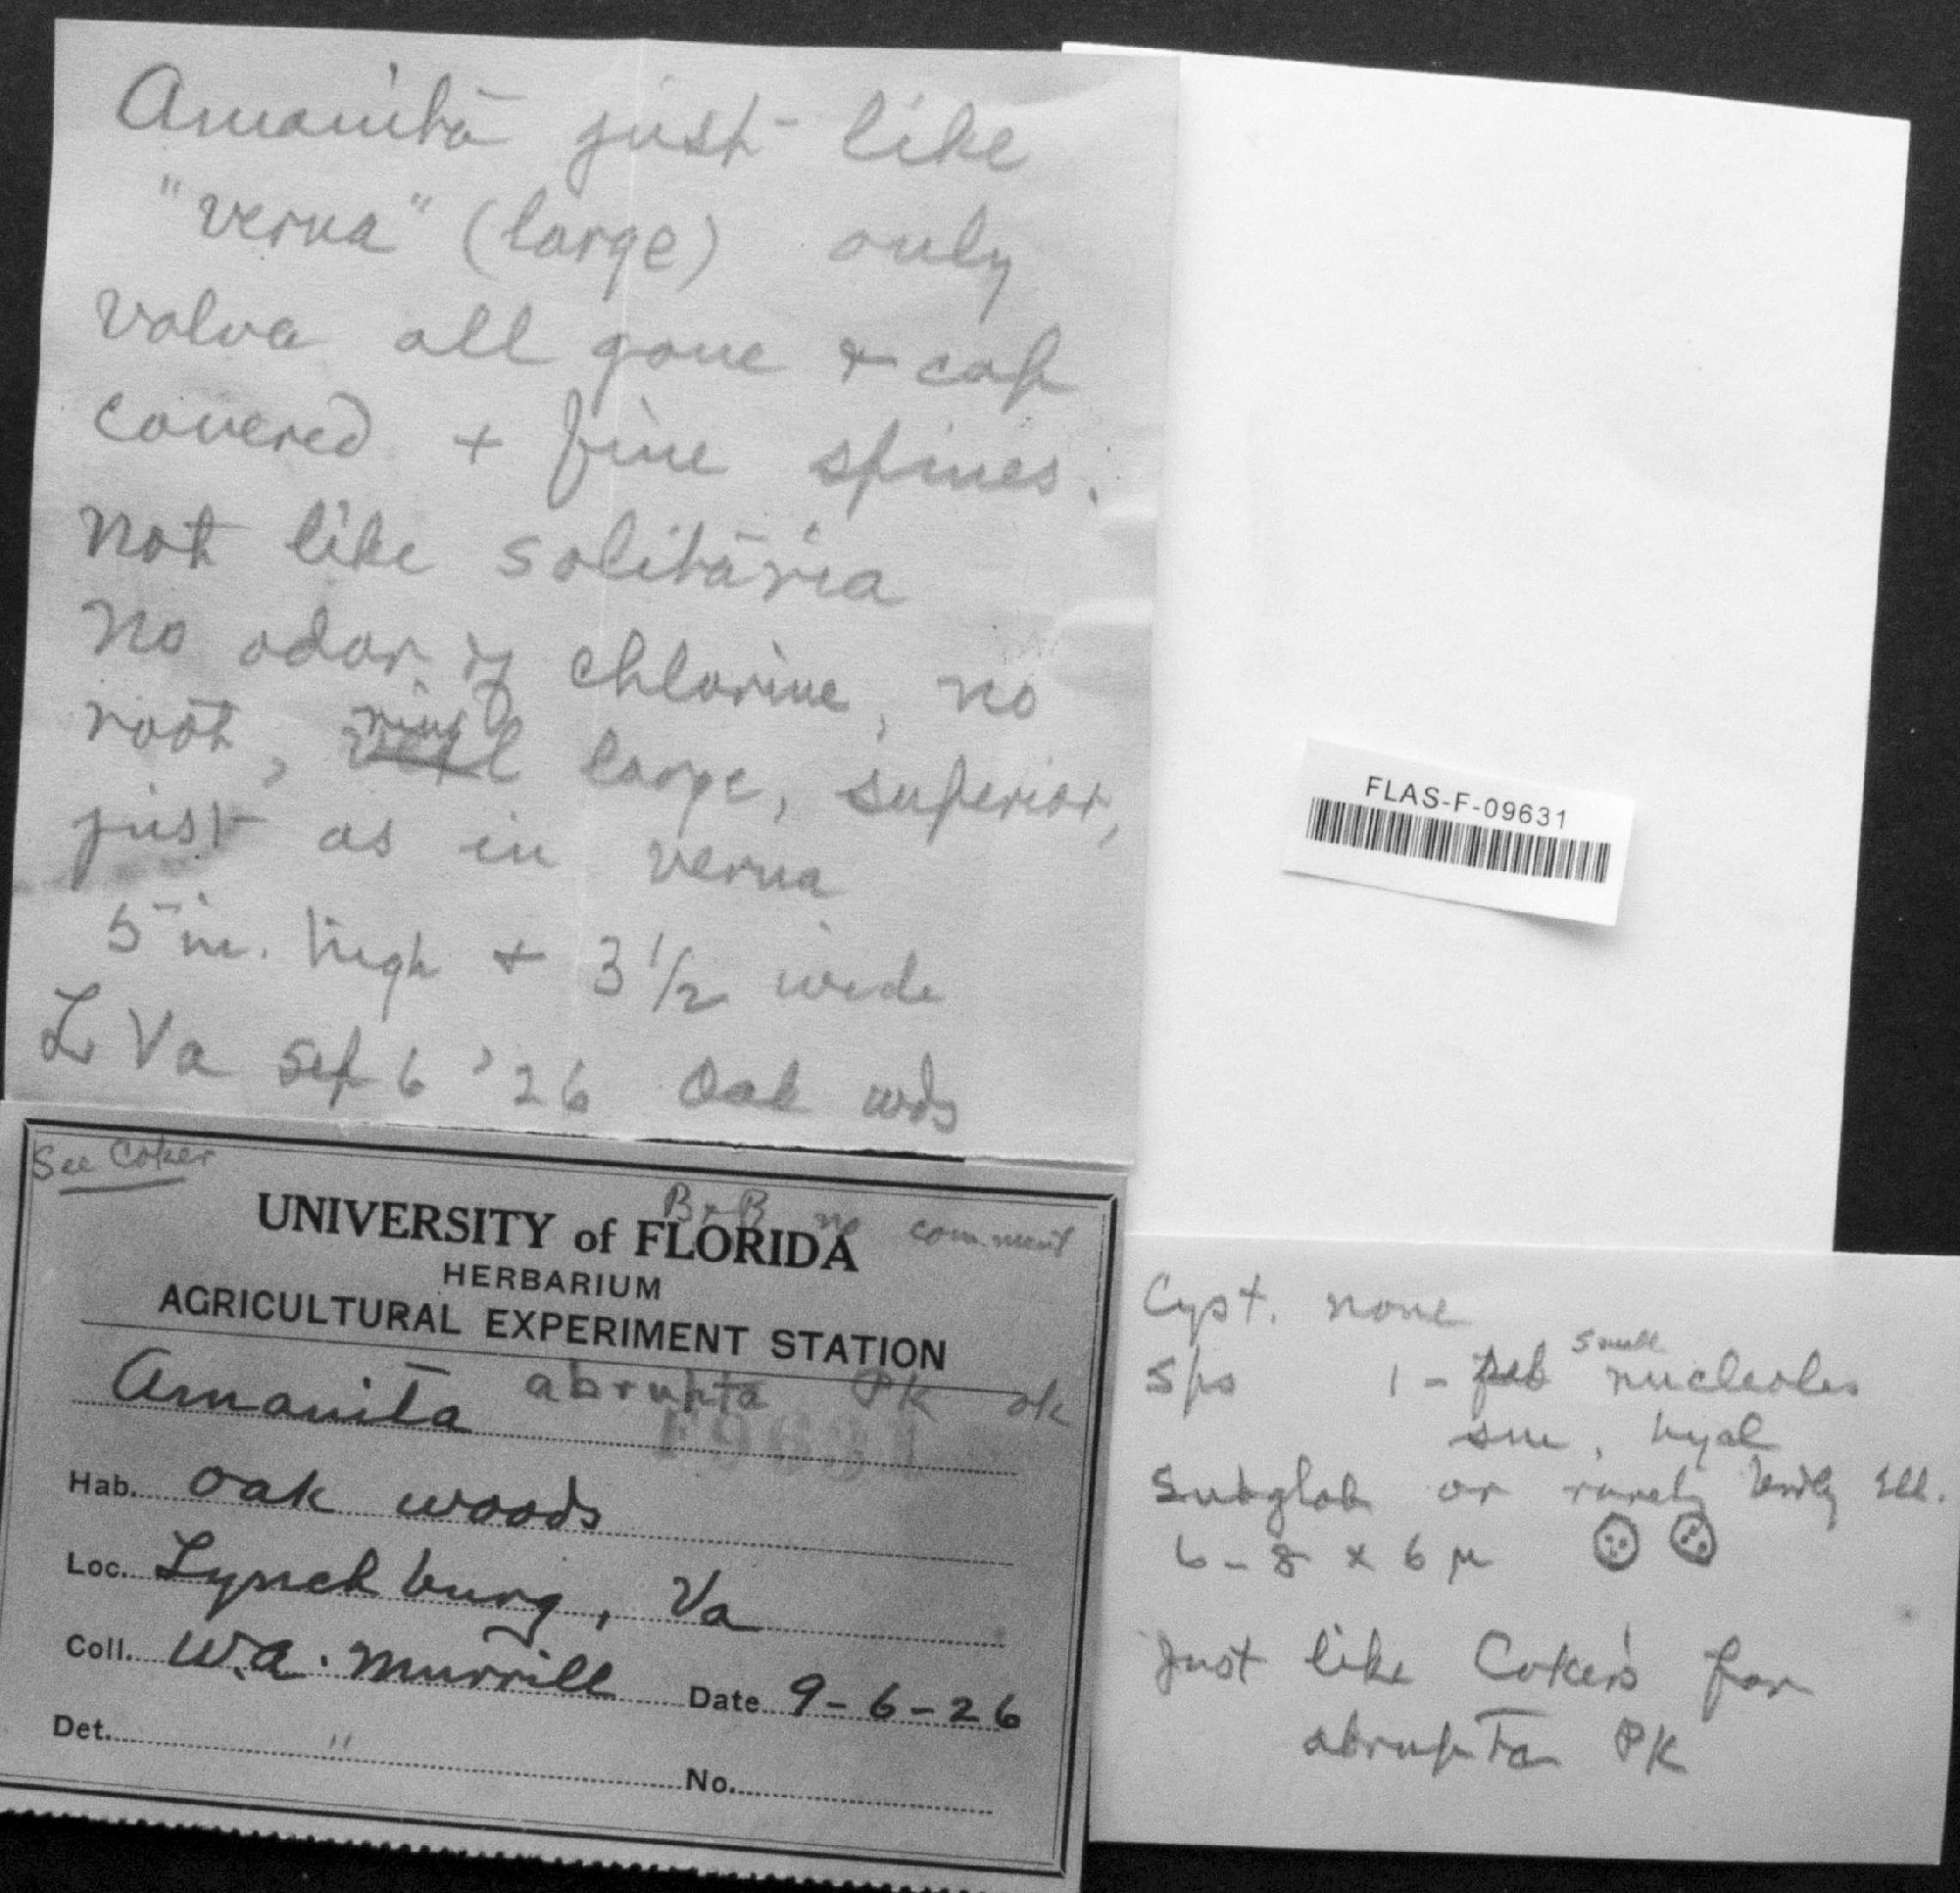 Amanita just like
"verna" (large) only
volva all gone + cap
covered + fine spines.
Not like solitaria
No odor of chlorine, no
root, ring large, superior,
just as in verna
5 in. high + 3 1/2 wide
L Va Sep 6 '26 Oak wds
FLAS-F-09631
See Coker
B & B no comment
UNIVERSITY of FLORIDA
HERBARIUM
AGRICULTURAL EXPERIMENT STATION
Amanita abrupta PK ok
F9631
Hab. oak woods
Loc. Lynchburg, Va
Coll. W.A. Murrill Date 9-6-26
Det. "
No.
Cyst. none
Sps 1 - small nucleoles
sm, hyal
Subglob or rarely brdly Ell.
6-8 x 6 µ
Just like Coker's for
abrupta PK